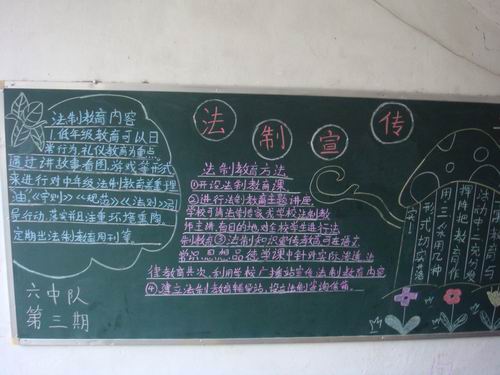 法制宣传
法制教育内容
1.低年级教育可以日
常行为,礼仪教育为重点
通过讲故事看图,游戏等形式
来进行对中年级法制教育
《守则》《规范》《法则》
导行动,落实并注重环境熏陶
定期出法制教育周刊等。
六中队
第三期
法制教育方法
①开设法制教育课
②进行法制教育主题讲座。
学校可请法制专家来学校法制教
师主讲,有目的地对全校学生进行法
制教育③法制知识宣传教育可在语文
常识思想品德学课中针对实际渗透法
律教育其次,利用学校广播站宣传法制教育内容
④建立法制教育辅导站,设立法制咨询信箱。
挥阵把教育作
用三《采用几种
形式切实落
实!